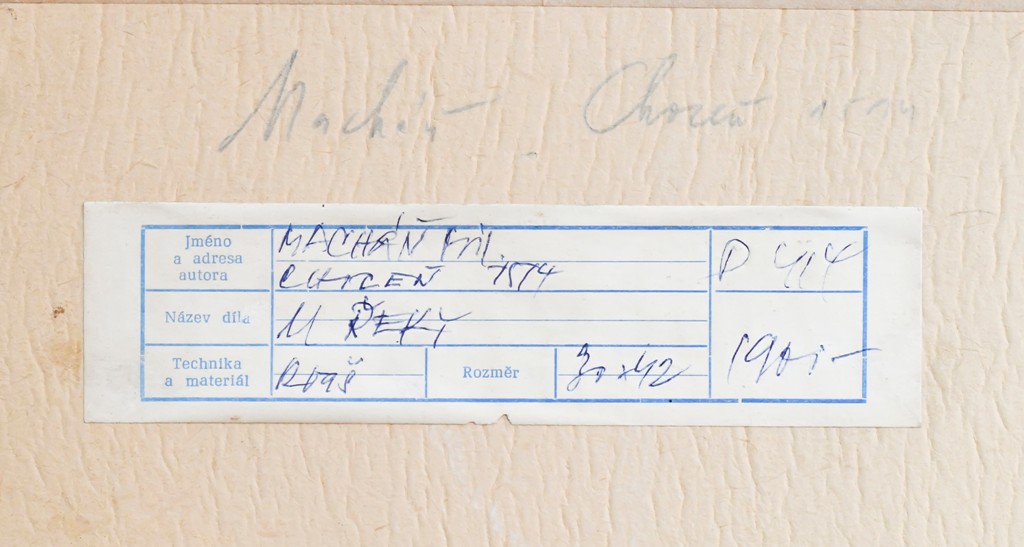 Macháň Choceň 1514
Jméno
a adresa
autora
MACHÁŇ MIL.
CHOCEŇ 1514
P 414
Název díla
U ŘEKY
Technika
a materiál
Rozměr
30 x 42
190,-